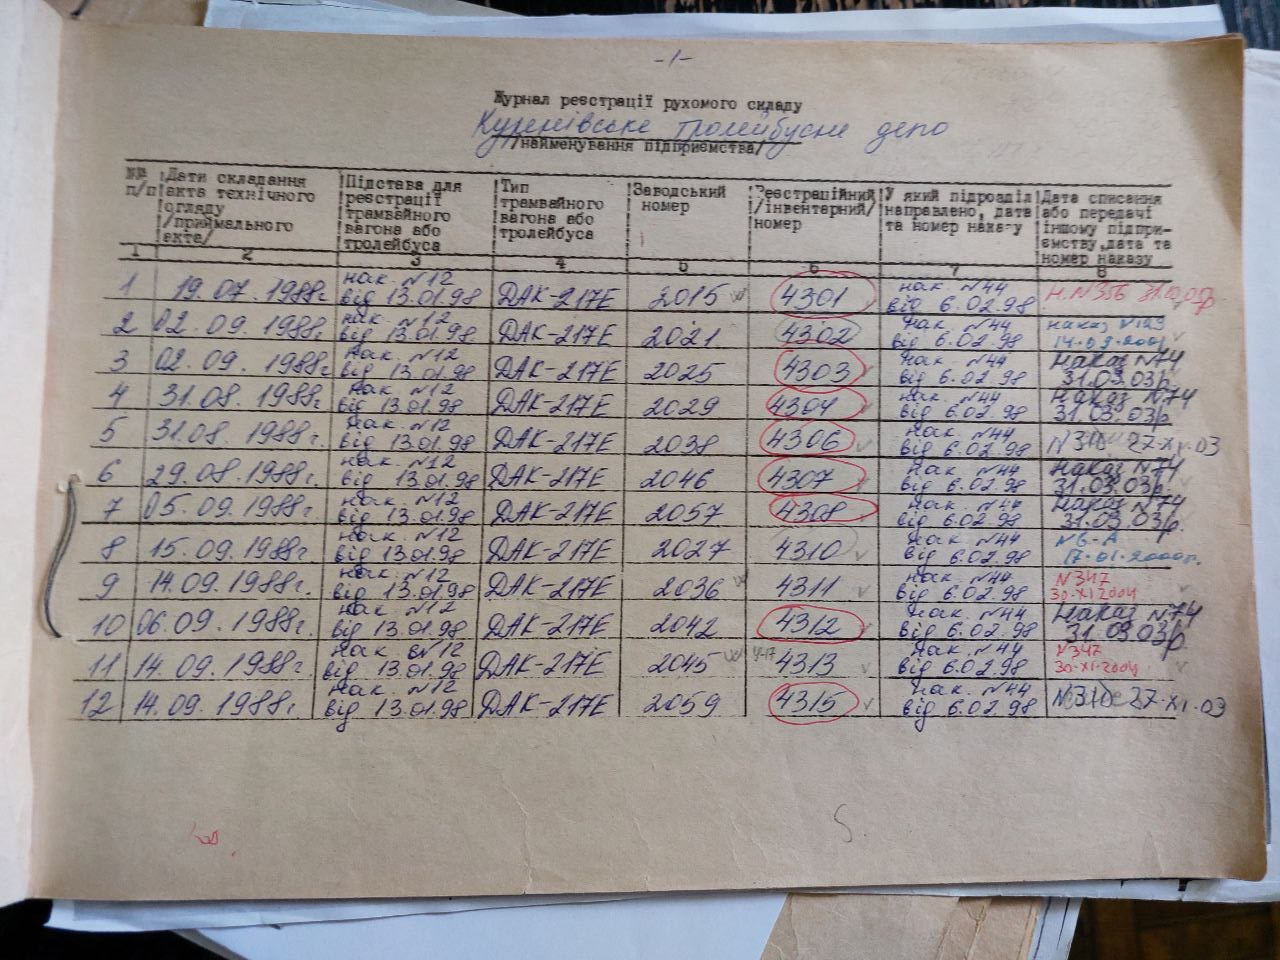 -1-
Журнал реєстрації рухомого складу
Куренівське тролейбусне депо
/найменування підприємства/
№№ п/п | Дати складання акта технічного огляду /приймального акта/ | Підстава для реєстрації трамвайного вагона або тролейбуса | Тип трамвайного вагона або тролейбуса | Заводський номер | Реєстраційний /інвентарний/ номер | У який підрозділ направлено, дата та номер наказу | Дата списання або передачі іншому підпри-ємству, дата та номер наказу
1 2 3 4 5 6 7 8
1 19.07.1988г нак. N12 від 13.01.98 ДАК-217Е 2015 4301 нак. N44 від 6.02.98 Н.N356
2 02.09.1988г. нак. N12 від 13.01.98 ДАК-217Е 2021 4302 нак. N44 від 6.02.98 наказ
3 02.09.1988г. нак. N12 від 13.01.98 ДАК-217Е 2025 4303 нак. N44 від 6.02.98 Наказ N74 31.03.03р.
4 31.08.1988г. нак. N12 від 13.01.98 ДАК-217Е 2029 4304 нак. N44 від 6.02.98 Наказ N74 31.03.03р.
5 31.08.1988г. нак. N12 від 13.01.98 ДАК-217Е 2038 4306 нак. N44 від 6.02.98 N310 27-XI-03
6 29.08.1988г. нак. N12 від 13.01.98 ДАК-217Е 2046 4307 нак. N44 від 6.02.98 Наказ N74 31.03.03р.
7 05.09.1988г. нак. N12 від 13.01.98 ДАК-217Е 2057 4308 нак. N44 від 6.02.98 Наказ N74 31.03.03р.
8 15.09.1988г. нак. N12 від 13.01.98 ДАК-217Е 2027 4310 нак. N44 від 6.02.98 N6-А 17.01.2000р.
9 14.09.1988г. нак. N12 від 13.01.98 ДАК-217Е 2036 4311 нак. N44 від 6.02.98 N347 30-XI-2004
10 06.09.1988г. нак. N12 від 13.01.98 ДАК-217Е 2042 4312 нак. N44 від 6.02.98 Наказ N74 31.03.03р.
11 14.09.1988г. нак. N12 від 13.01.98 ДАК-217Е 2045 4313 нак. N44 від 6.02.98 N347 30-XI-2004
12 14.09.1988г. нак. N12 від 13.01.98 ДАК-217Е 2059 4315 нак. N44 від 6.02.98 N310 27-XI-03